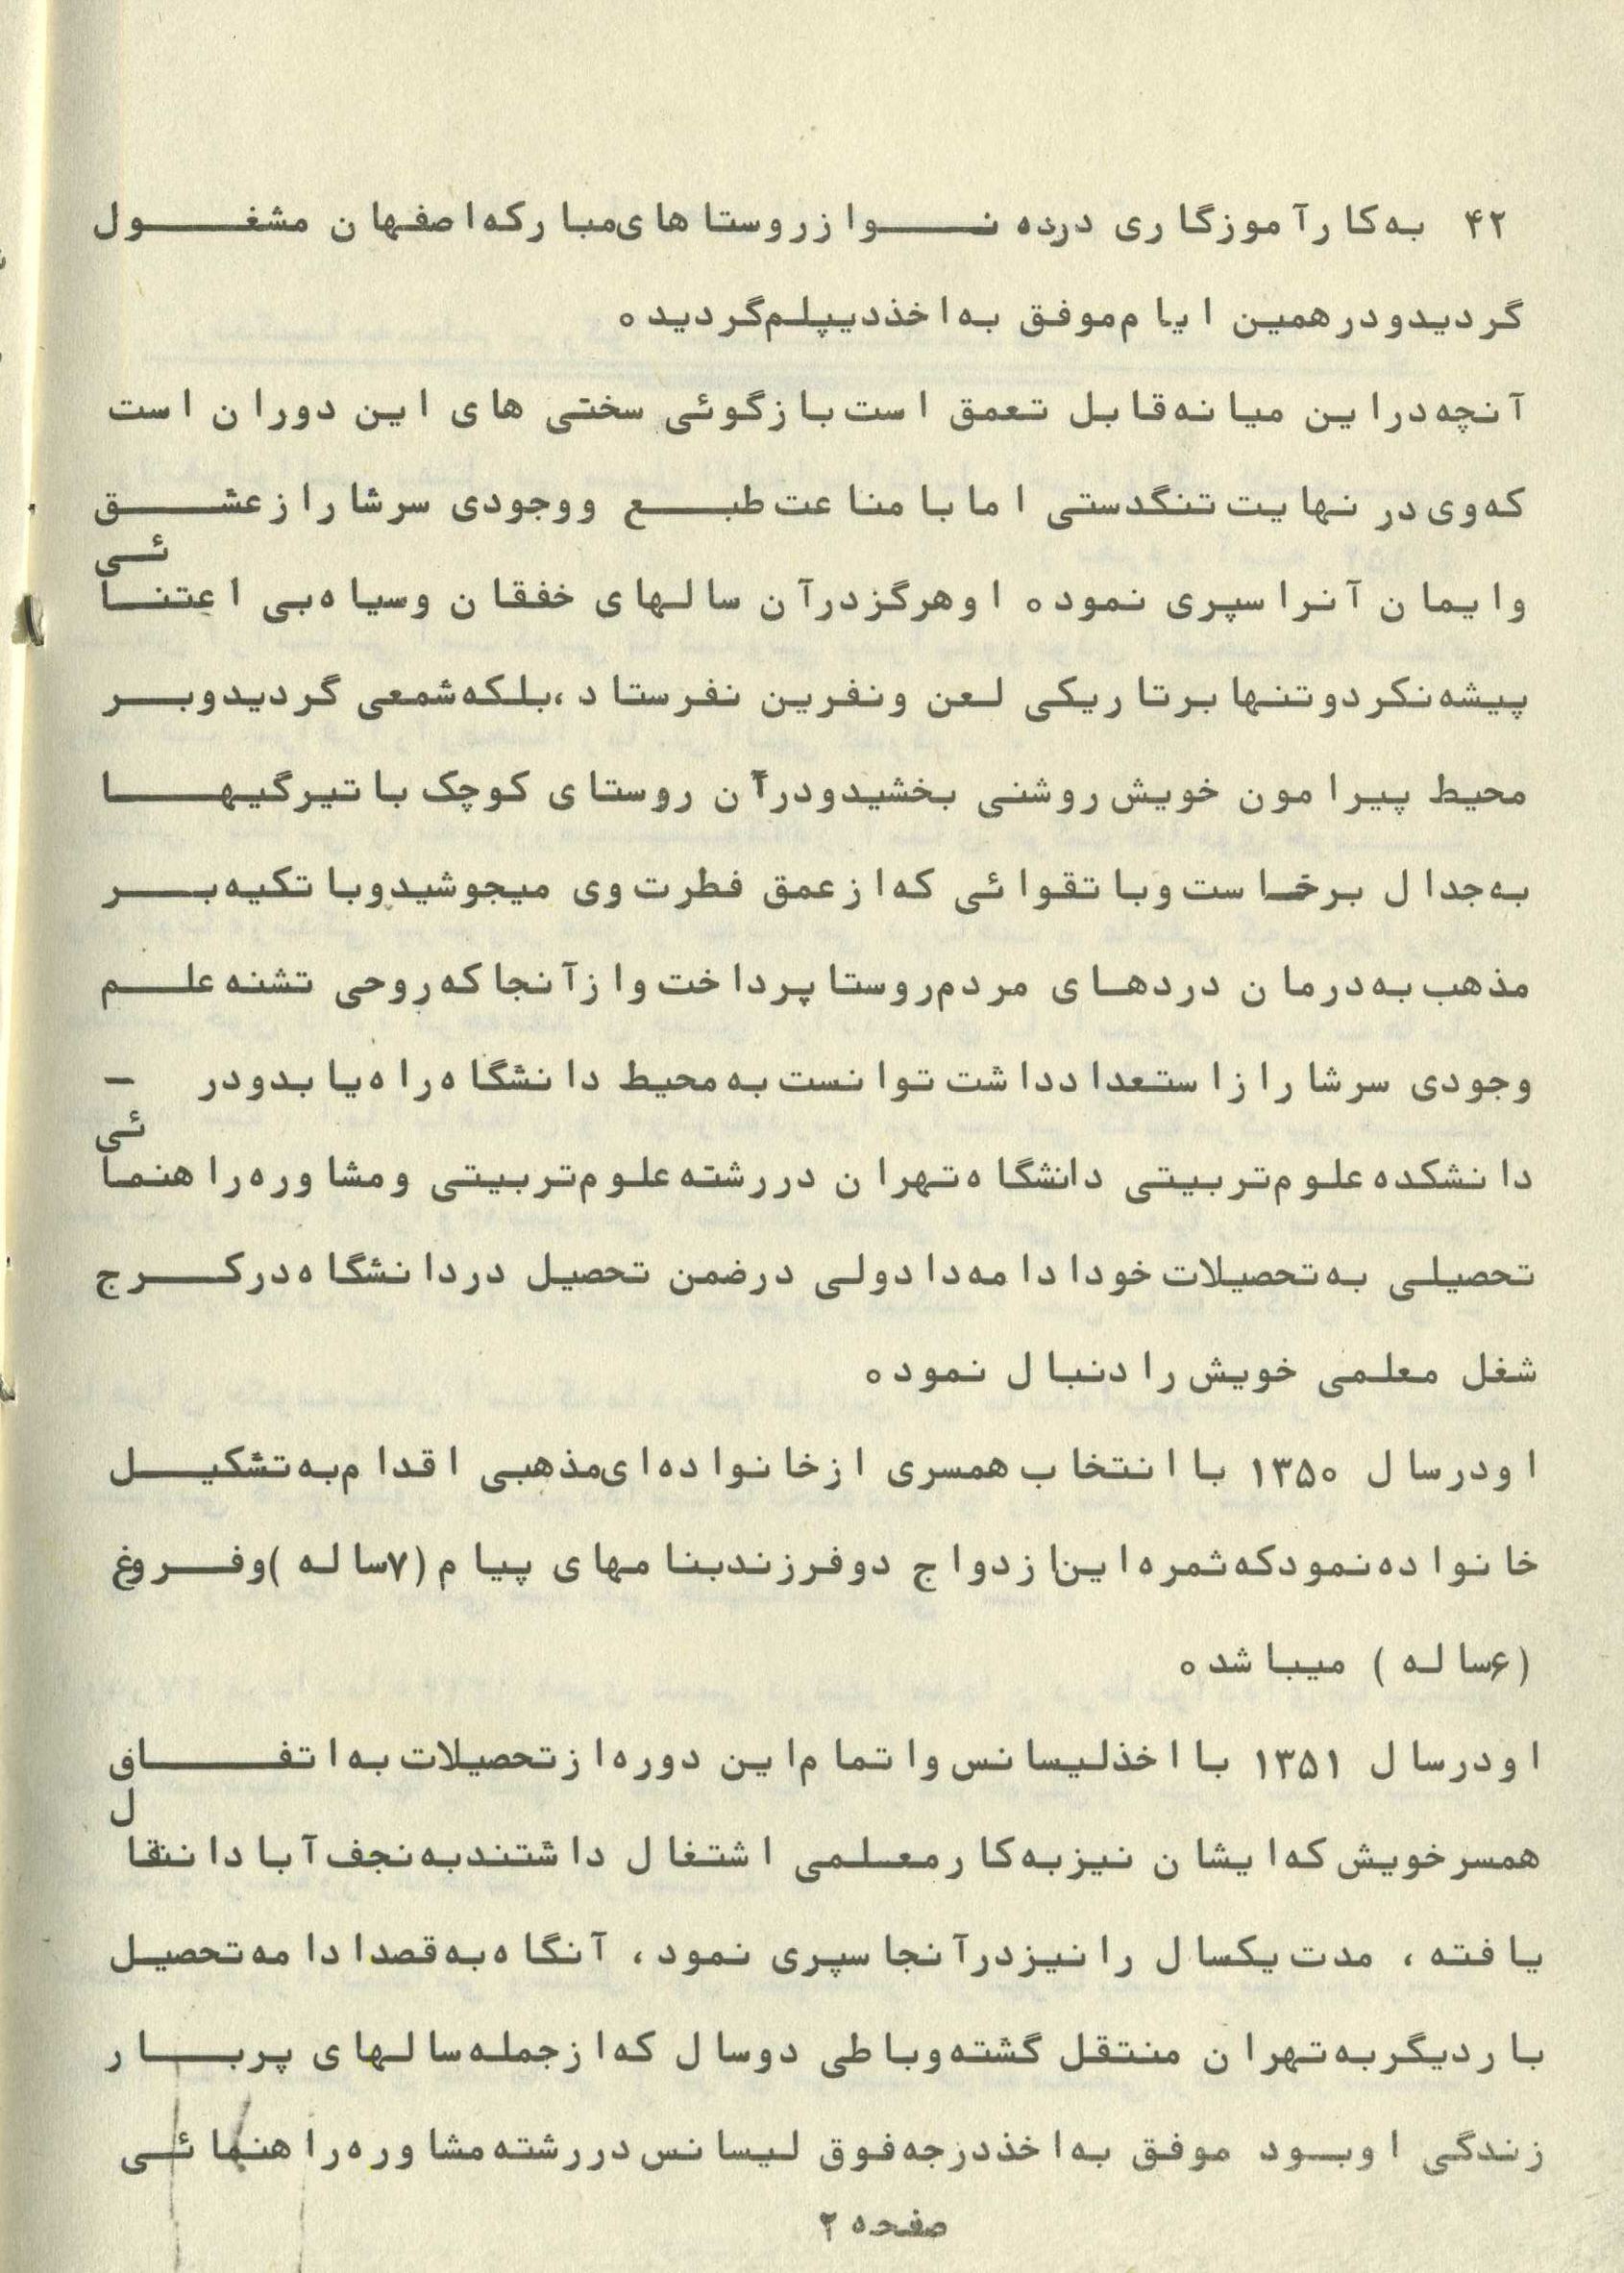 ۴۲ به کار آموزگاری در ده نو از روستاهای مبارکه اصفهان مشغول
گردید و در همین ایام موفق به اخذ دیپلم گردید.
آنچه در این میانه قابل تعمق است بازگوئی سختی های این دوران است
که وی در نهایت تنگدستی اما با مناعت طبع و وجودی سرشار از عشق
و ایمان آنرا سپری نمود. او هرگز در آن سالهای خفقان و سیاه بی اعتنائی
پیشه نکرد و تنها بر تاریکی لعن و نفرین نفرستاد، بلکه شمعی گردید و بر
محیط پیرامون خویش روشنی بخشید و در آن روستای کوچک با تیرگیها
به جدال برخاست و با تقوائی که از عمق فطرت وی میجوشید و با تکیه بر
مذهب به درمان دردهای مردم روستا پرداخت و از آنجا که روحی تشنه علم
وجودی سرشار از استعداد داشت توانست به محیط دانشگاه راه یابد و در –
دانشکده علوم تربیتی دانشگاه تهران در رشته علوم تربیتی و مشاوره راهنمائی
تحصیلی به تحصیلات خود ادامه داد ولی در ضمن تحصیل در دانشگاه در کرج
شغل معلمی خویش را دنبال نمود.
او در سال ۱۳۵۰ با انتخاب همسری از خانواده ای مذهبی اقدام به تشکیل
خانواده نمود که ثمره این ازدواج دو فرزند بنامهای پیام (۷ساله) و فروغ
(۶ساله) میباشد.
او در سال ۱۳۵۱ با اخذ لیسانس و اتمام این دوره از تحصیلات به اتفاق
همسر خویش که ایشان نیز به کار معلمی اشتغال داشتند به نجف آباد انتقال
یافته، مدت یکسال را نیز در آنجا سپری نمود، آنگاه به قصد ادامه تحصیل
بار دیگر به تهران منتقل گشته و با طی دو سال که از جمله سالهای پربار
زندگی او بود موفق به اخذ درجه فوق لیسانس در رشته مشاوره راهنمائی
صفحه ۲